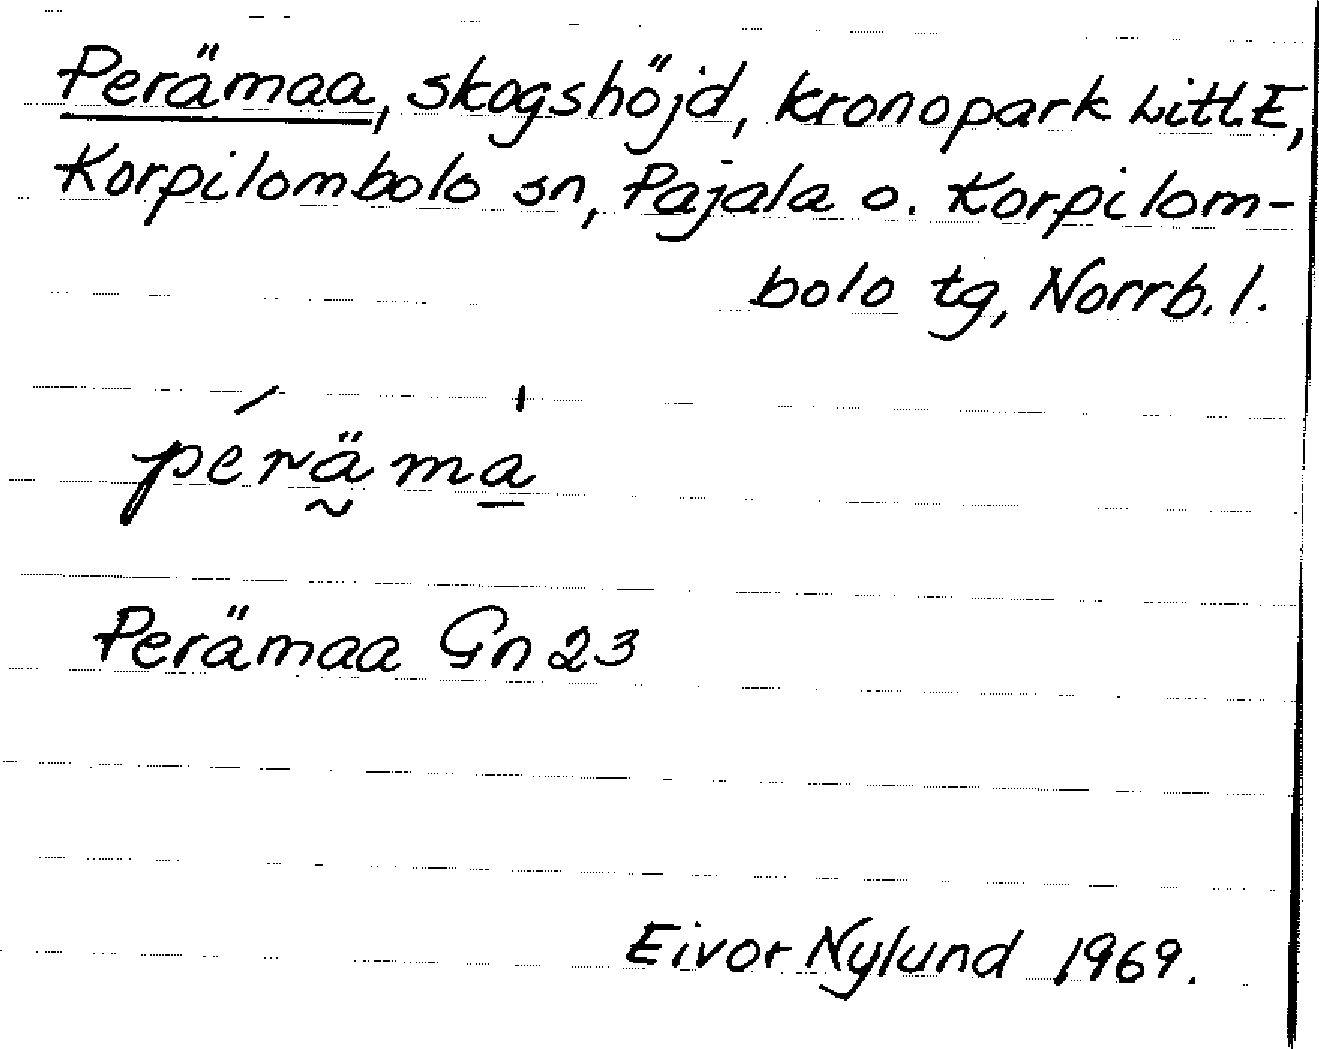 Perämaa, skogshöjd, kronopark Litt. E,
Korpilombolo sn, Pajala o. Korpilom-
bolo tg, Norrb. l.
perä̰ma̱
Perämaa Gn 23
Eivor Nylund 1969.